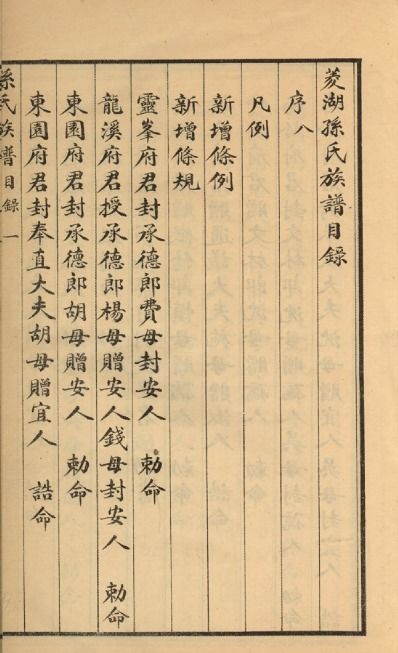 菱湖孫氏族譜目錄
序八
凡例
新增條例
新增條規
靈峯府君封承德郎費母封安人 勅命
龍溪府君授承德郎楊母贈安人錢母封安人 勅命
東園府君封承德郎胡母贈安人 勅命
東園府君封奉直大夫胡母贈宜人 誥命
孫氏族譜目錄 一